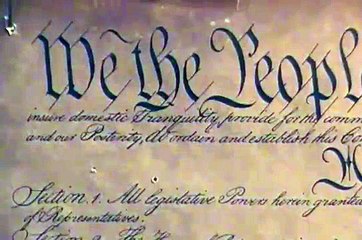 We the Peopl
insure domestic Tranquility, provide for the comm
and our Posterity, do ordain and establish this Co
Section. 1. All legislative Powers herein grante
of Representatives.
Section. 2. The